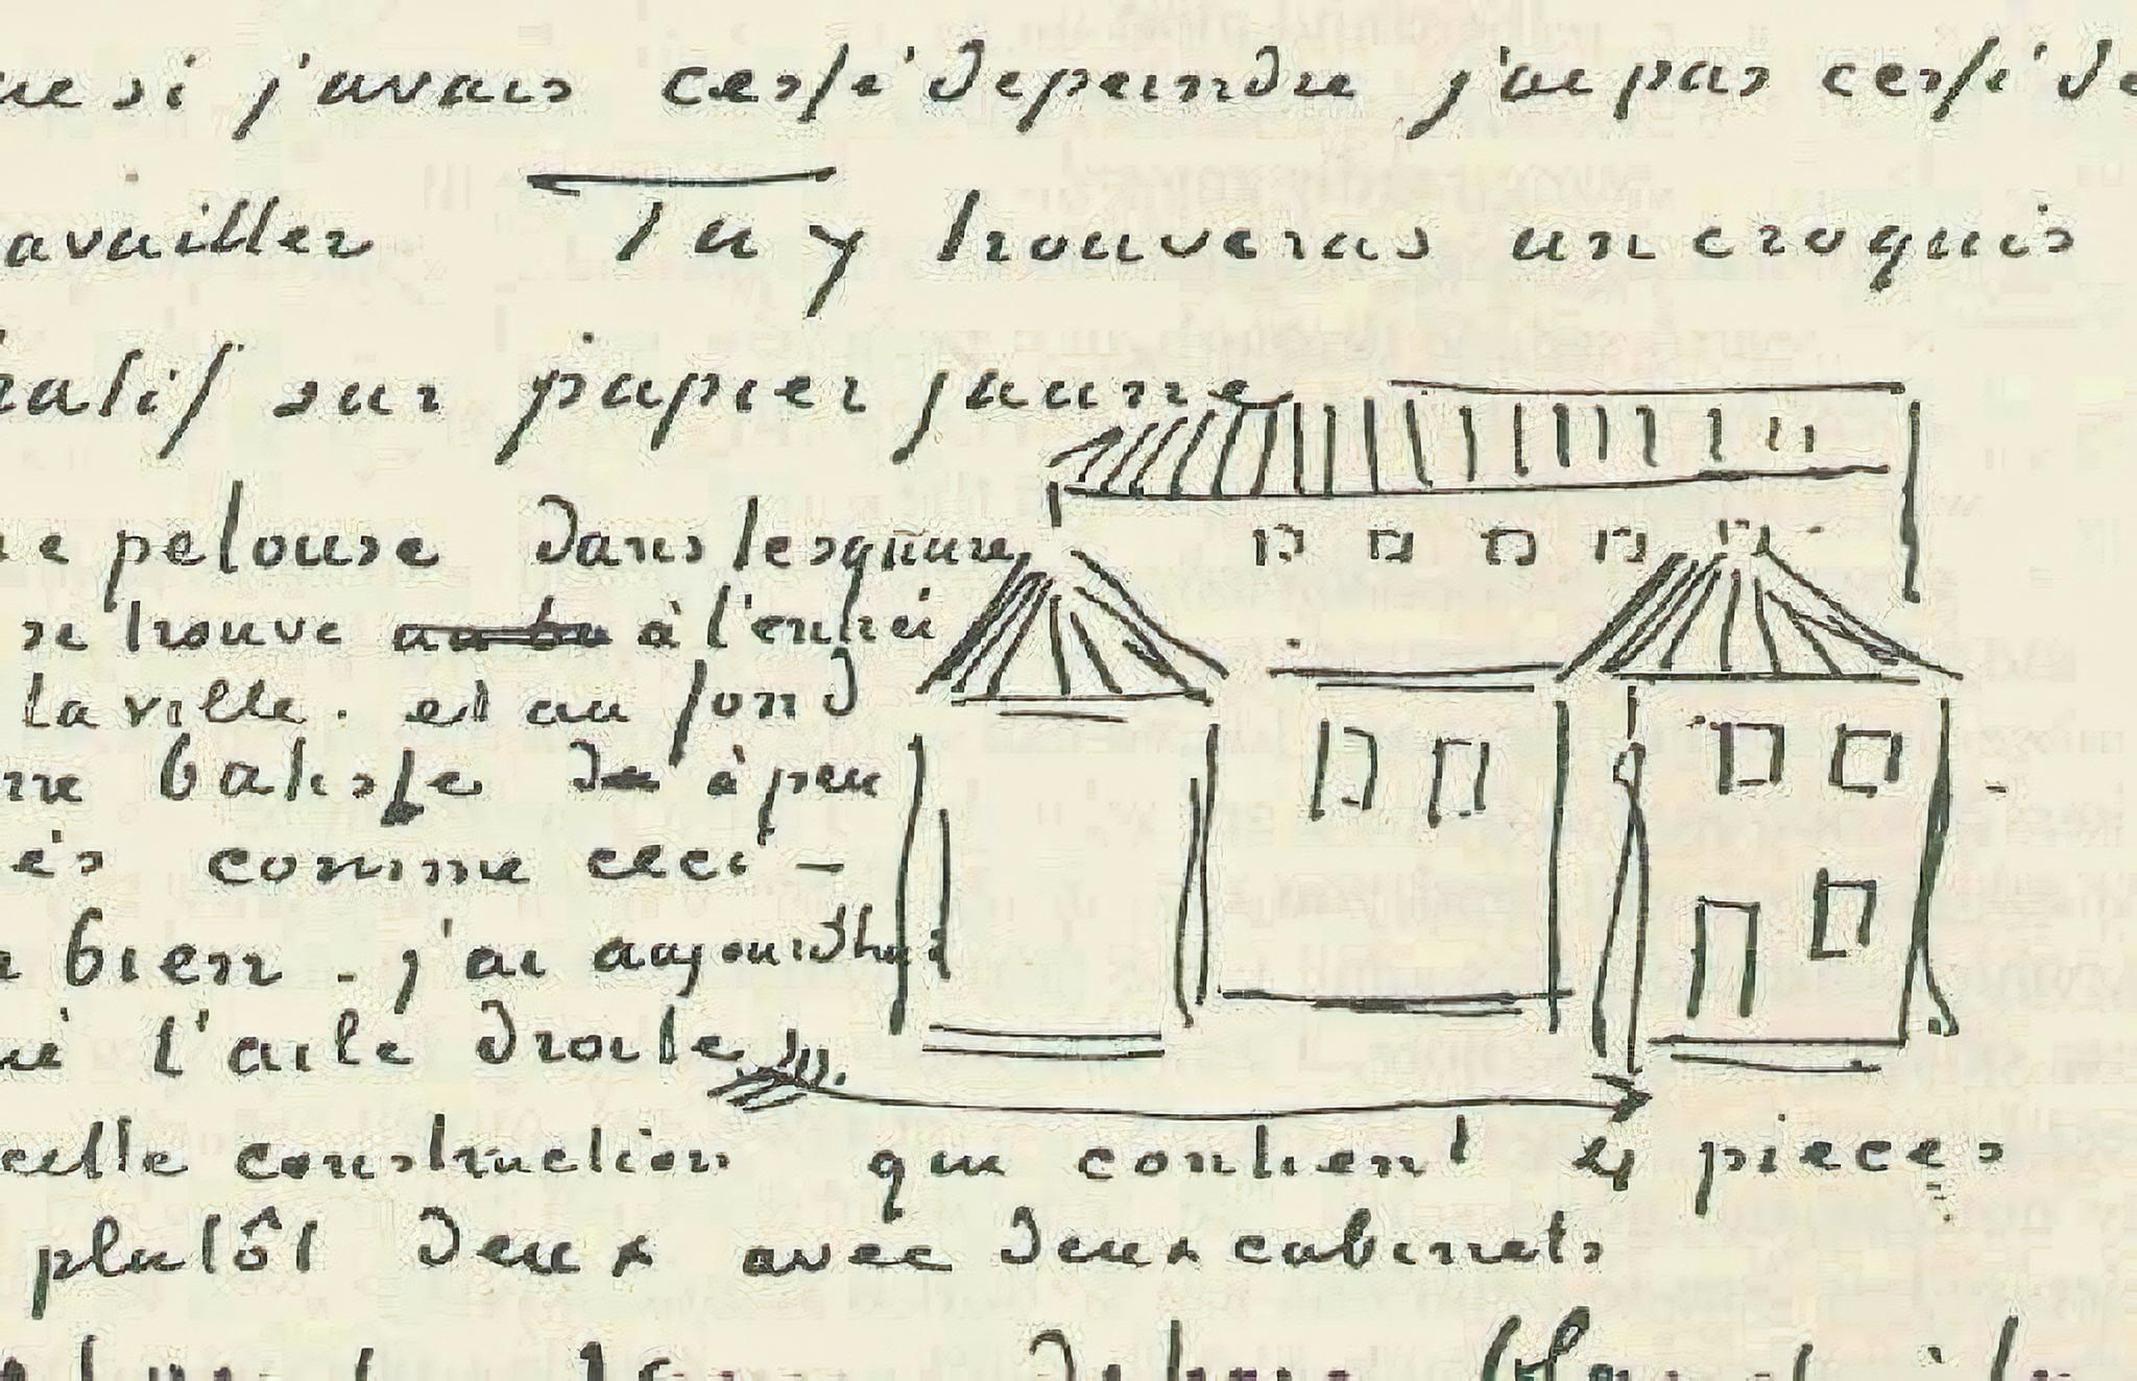 ue si j'avais cessé de peindre j'ai pas cessé de
availler Tu y trouveras un croquis
ratif sur papier jaune
e pelouse dans le square
se trouve au bu à l'entrée
la ville. et au fond
ne batisse de à peu
ès comme ceci –
bien . j'ai aujourdhui
l'aile droite
cette construction qui contient 4 pieces
plutôt deux avec deux cabinets